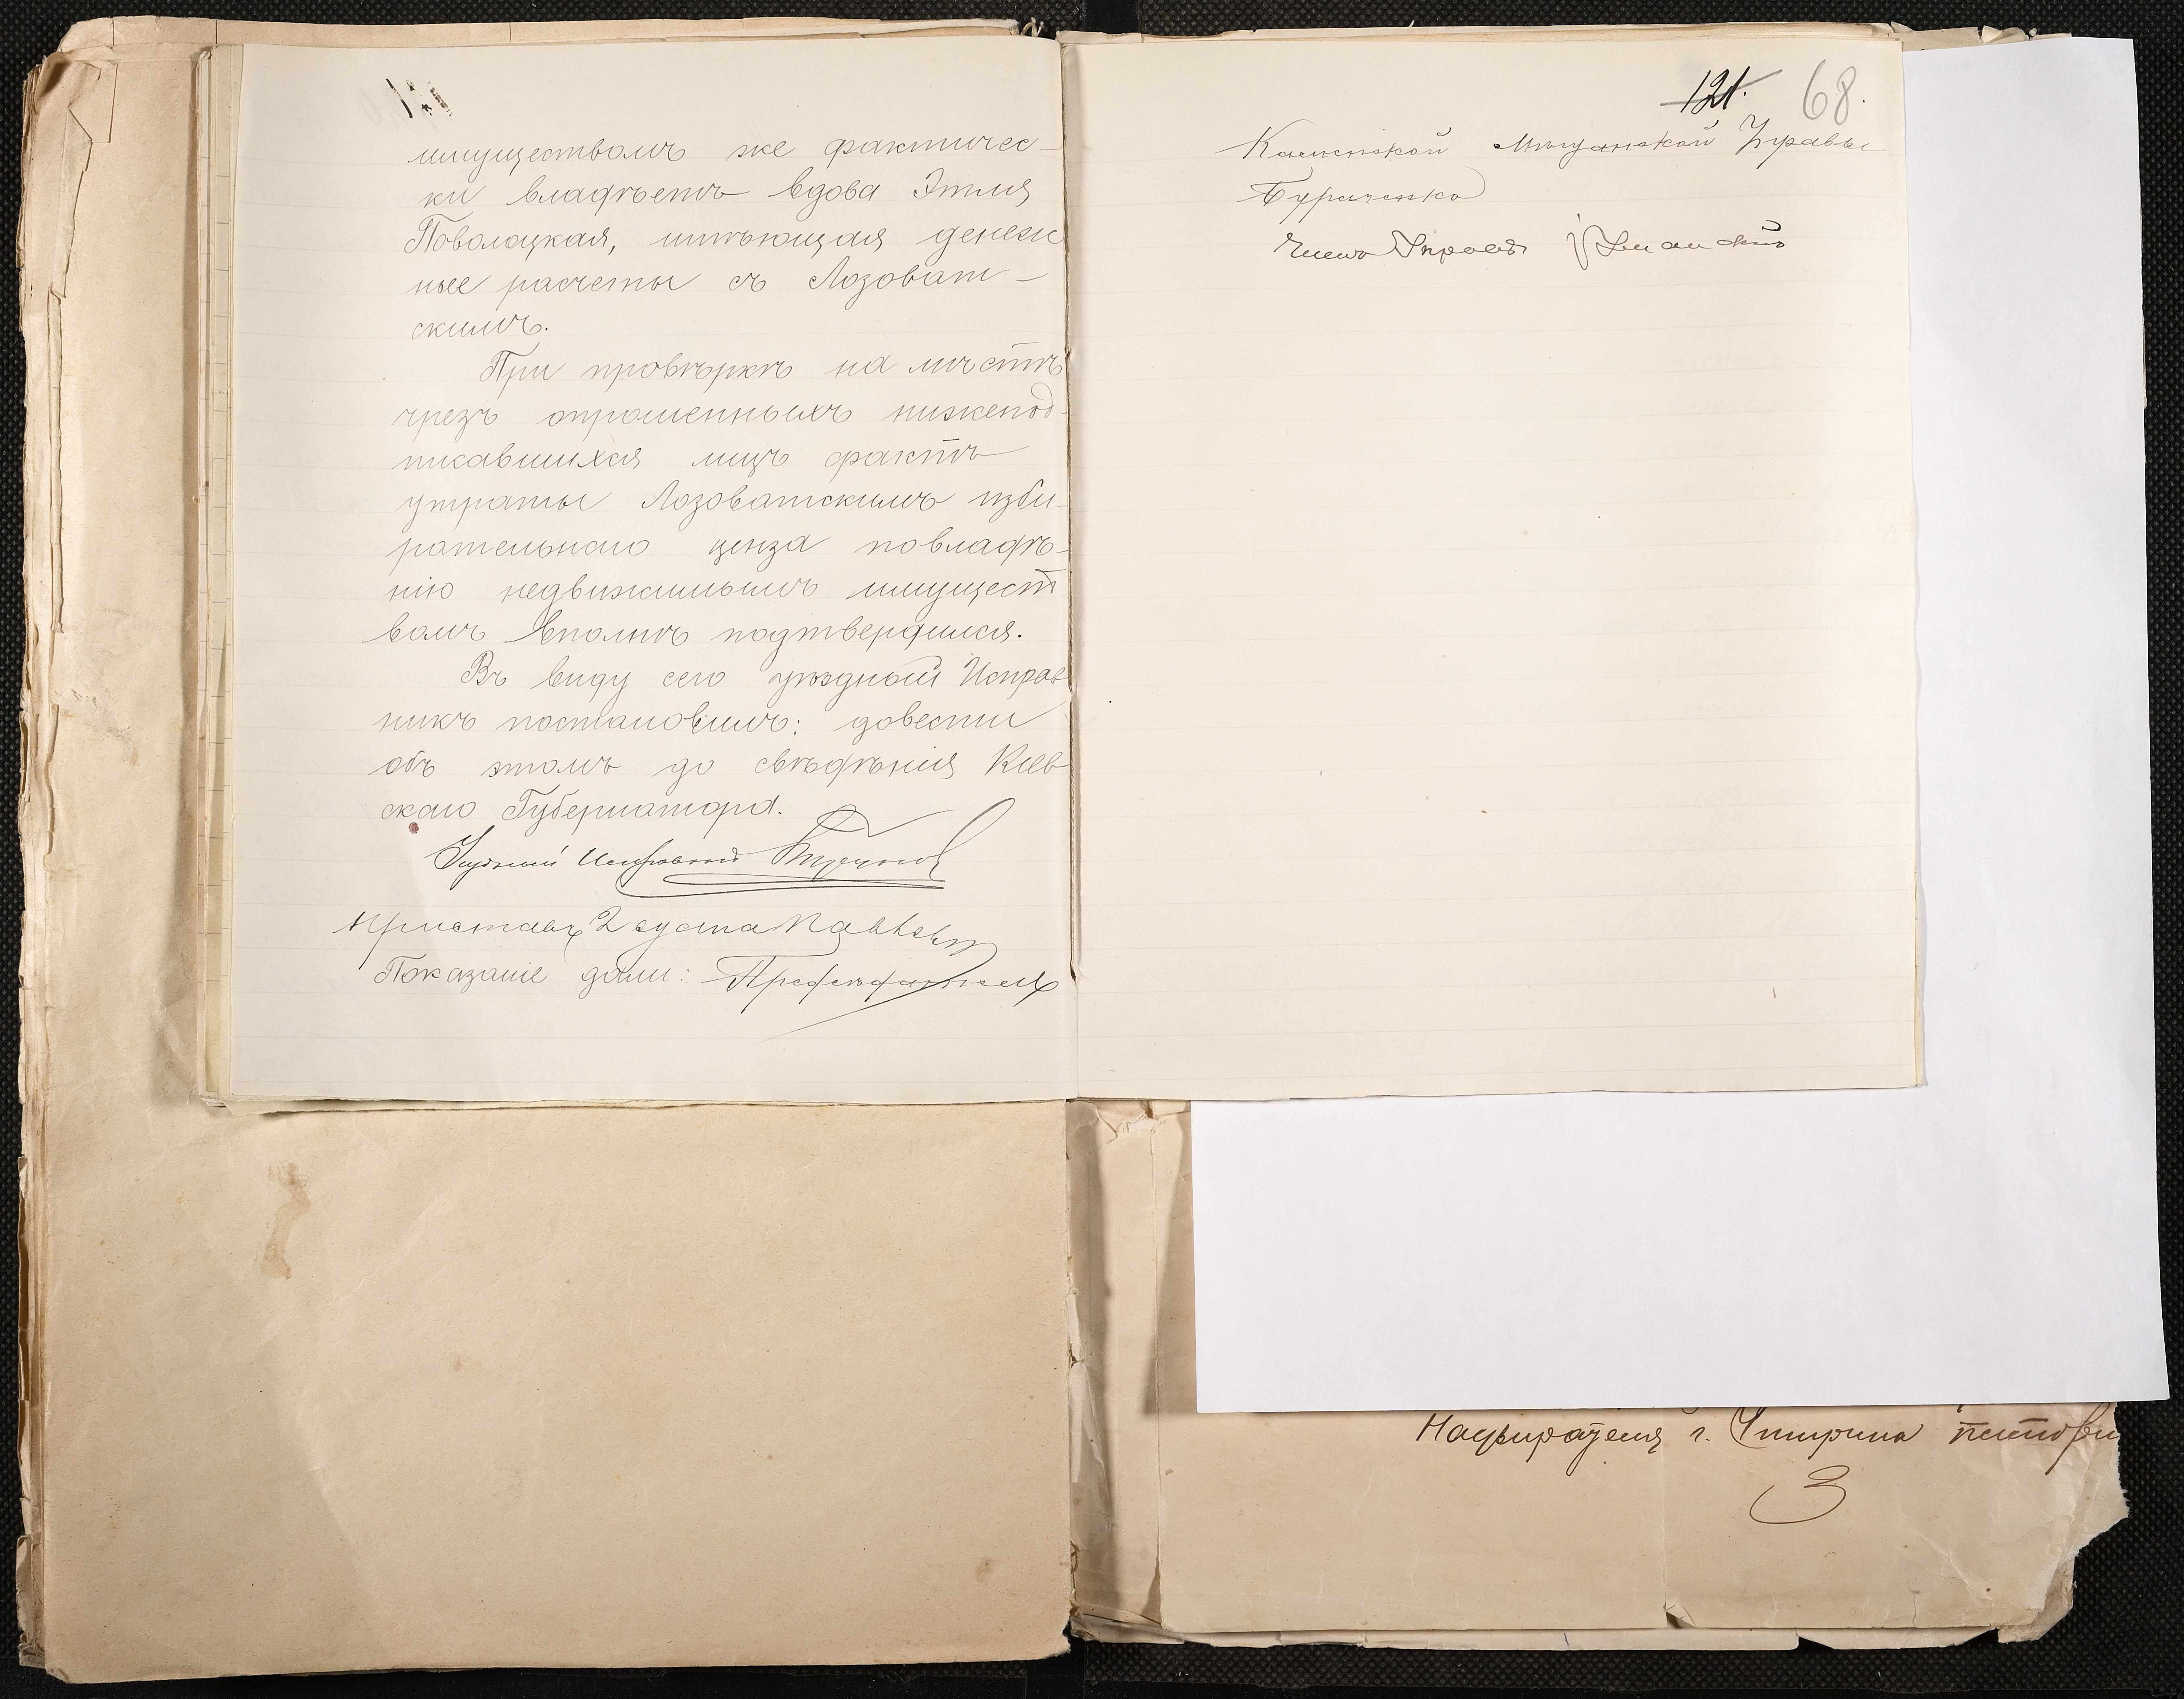 имуществомъ же фактичес-
ки владѣетъ вдова Этля
Поволоцкая, имѣющая денеж
ные расчеты съ Лозоват-
скимъ.
При провѣркѣ на мѣстѣ
чрезъ опрошенныхъ нижепод-
писавшихся лицъ фактъ
утраты Лозоватскимъ изби-
рательнаго ценза по владѣ-
нію недвижимымъ имущест
вомъ вполнѣ подтвердился.
Въ виду сего уѣздный Исправ
никъ постановилъ: довести
объ этомъ до свѣдѣнія Кіев
скаго Губернатора.
Уѣздный Исправникъ
Приставъ 2 стана
Показаніе дали:
121. 68.
Каменской Мѣщанской Управы
Бураченко
Членъ Управы
г.
З